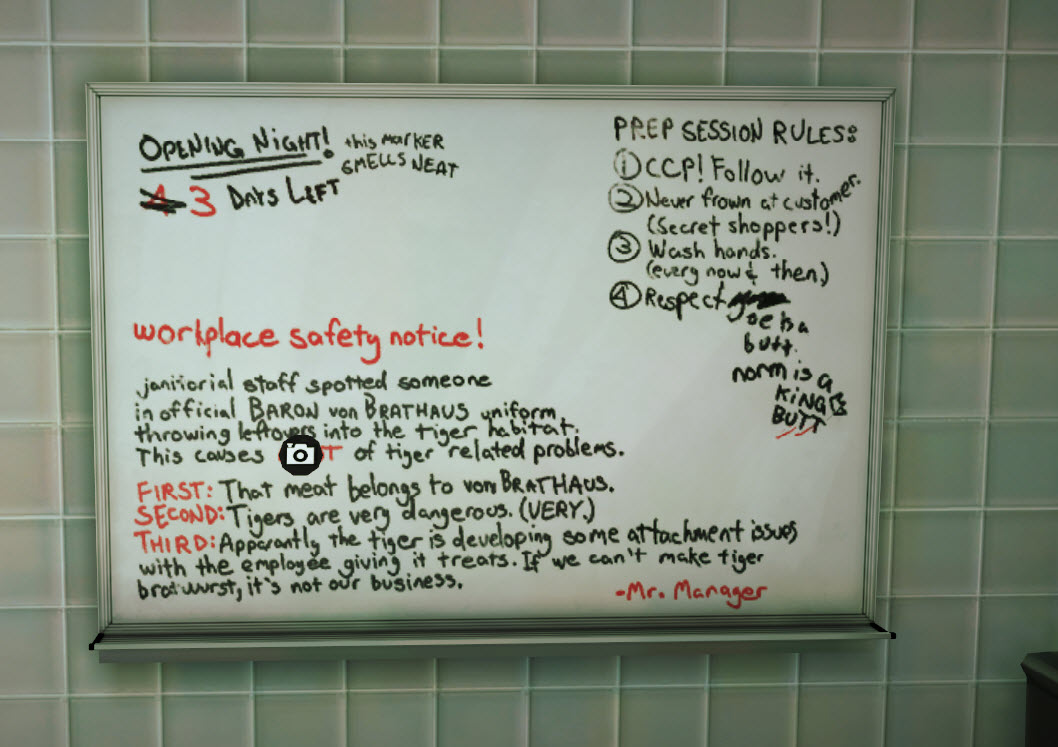 OPENING NIGHT!
this MARKER
SMELLS NEAT
4 3 DAYS LEFT
PREP SESSION RULES:
① CCP! Follow it.
② Never frown at customer.
(Secret shoppers!)
③ Wash hands.
(every now & then)
④ Respect
Joe is a
butt.
norm is a
KING
BUTT
workplace safety notice!
janitorial staff spotted someone
in official BARON von BRATHAUS uniform,
throwing leftovers into the tiger habitat.
This causes of tiger related problems.
FIRST: That meat belongs to von BRATHAUS.
SECOND: Tigers are very dangerous. (VERY.)
THIRD: Apparantly the tiger is developing some attachment issues
with the employee giving it treats. If we can't make tiger
bratwurst, it's not our business.
-Mr. Manager